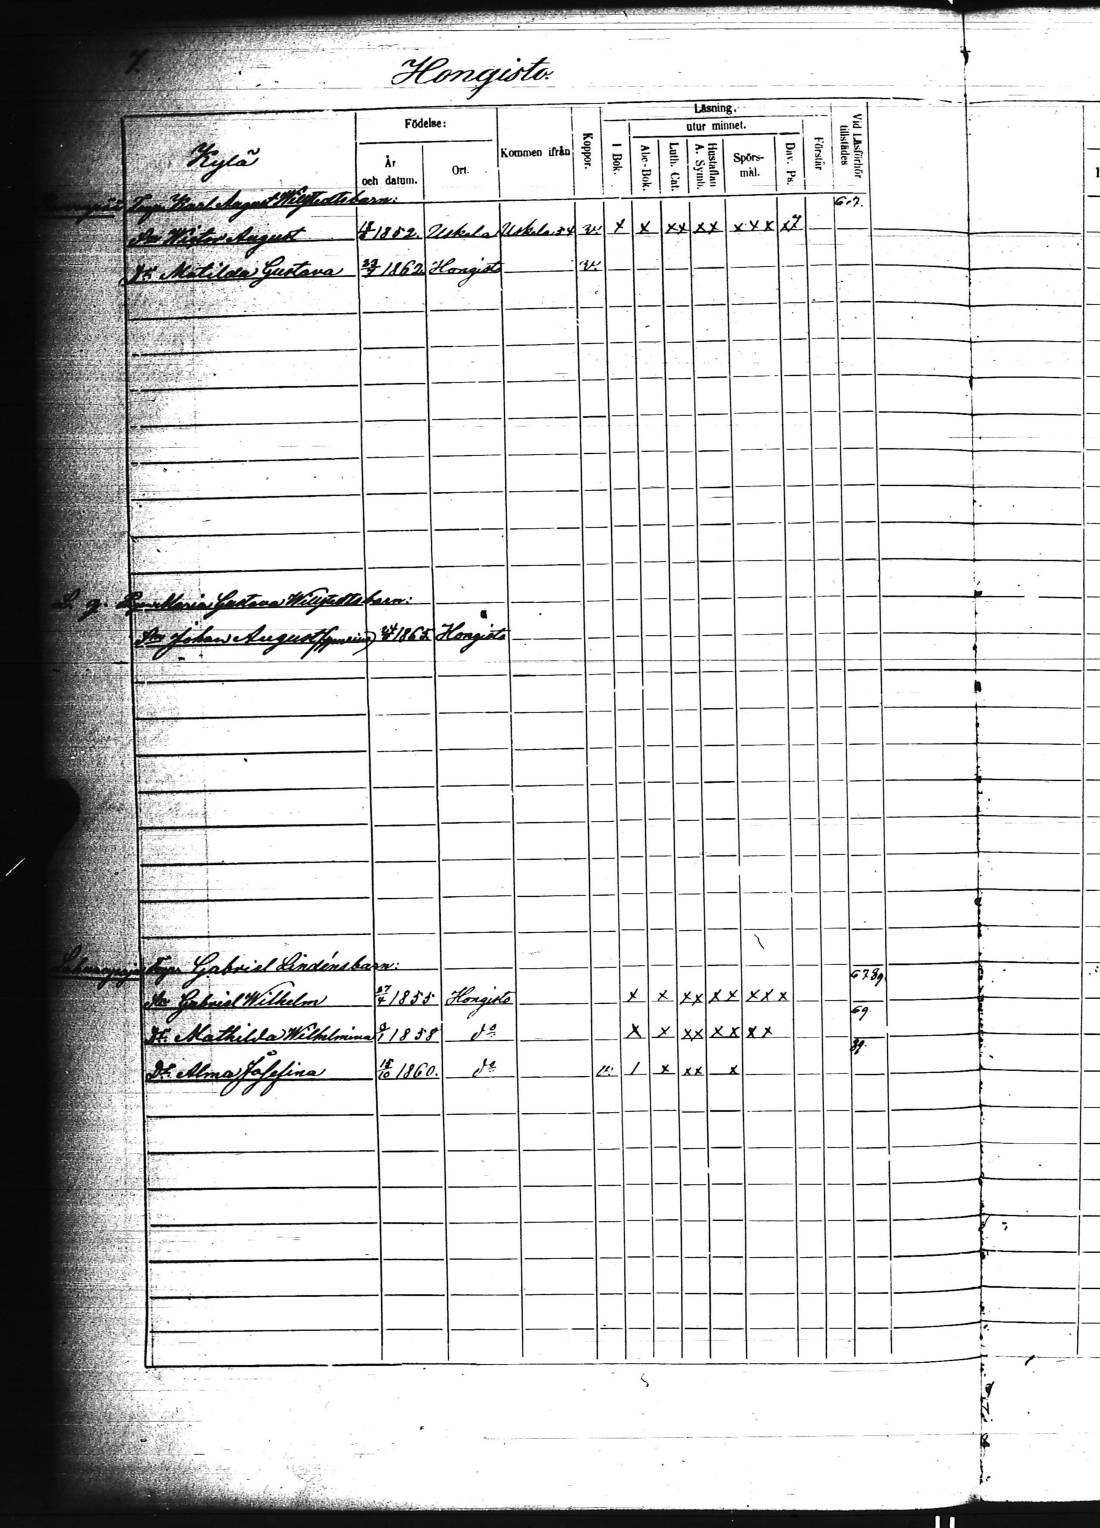 7.
Hongisto.
Kylä
Födelse:
År och datum.
Ort.
Kommen ifrån
Koppor.
Läsning.
I Bok.
utur minnet.
Abc-Bok.
Luth. Cat.
Hustaflan A. Symb.
Spörs-mål.
Dav. Ps.
Förstår
Vid Läsförhör tillstädes
Karl August Willstedts barn: 67.
Sn Wictor August 1852. Uskela Uskela 54 v. x x xx xx xxx x7
Dr. Matilda Gustava 1862 Hongisto v.
Maria Gustava Willstedts barn:
Sn Johan August 1865. Hongisto
Gabriel Lindéns barn: 6789.
Sn Gabriel Wilhelm 27/4 1855 Hongisto x x xx xx xxx 69
Dr. Mathilda Wilhelmina 1858 do x x xx xx xx 89.
Dr. Alma Josefina 1860. do v. 1 x xx x